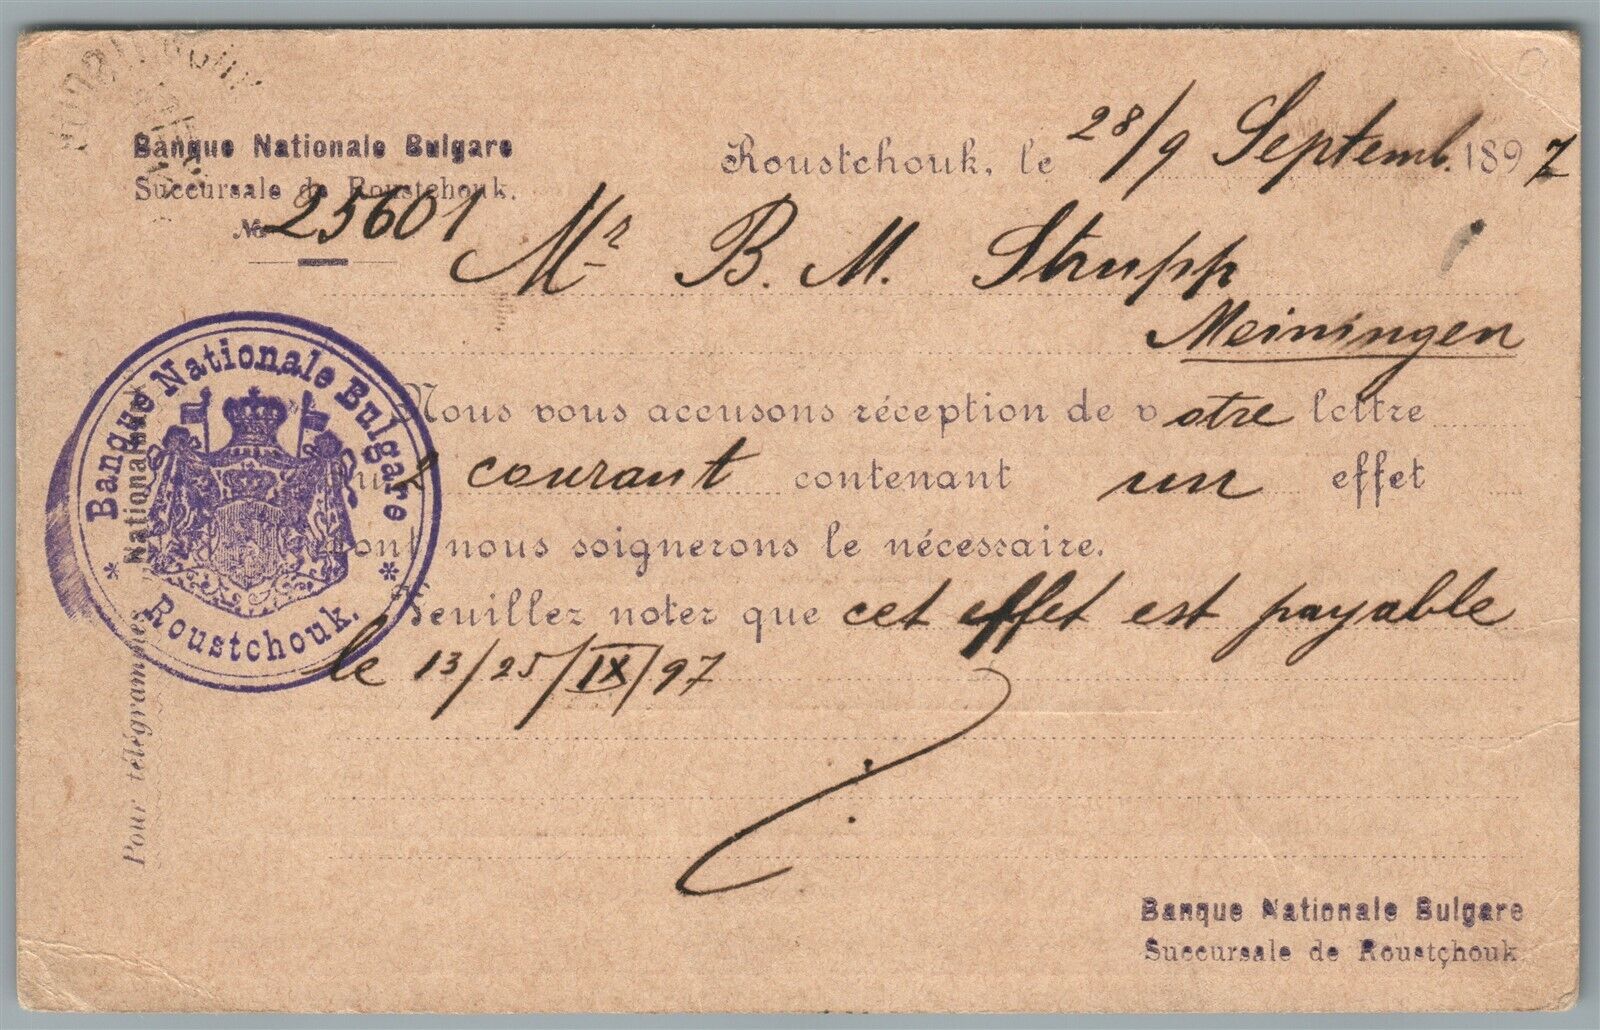 Banque Nationale Bulgare
Succursale de Roustchouk.
No 25601
Roustchouk, le 28/9 Septemb. 1897
Mr B. M. Strupp
Meiningen
Nous vous accusons réception de votre lettre
du 2 courant contenant un effet
dont nous soignerons le nécessaire.
Veuillez noter que cet effet est payable
le 13/25/IX/97
Banque Nationale Bulgare
* Roustchouk. *
Pour télégrammes: Nationalbank
Banque Nationale Bulgare
Succursale de Roustçhouk